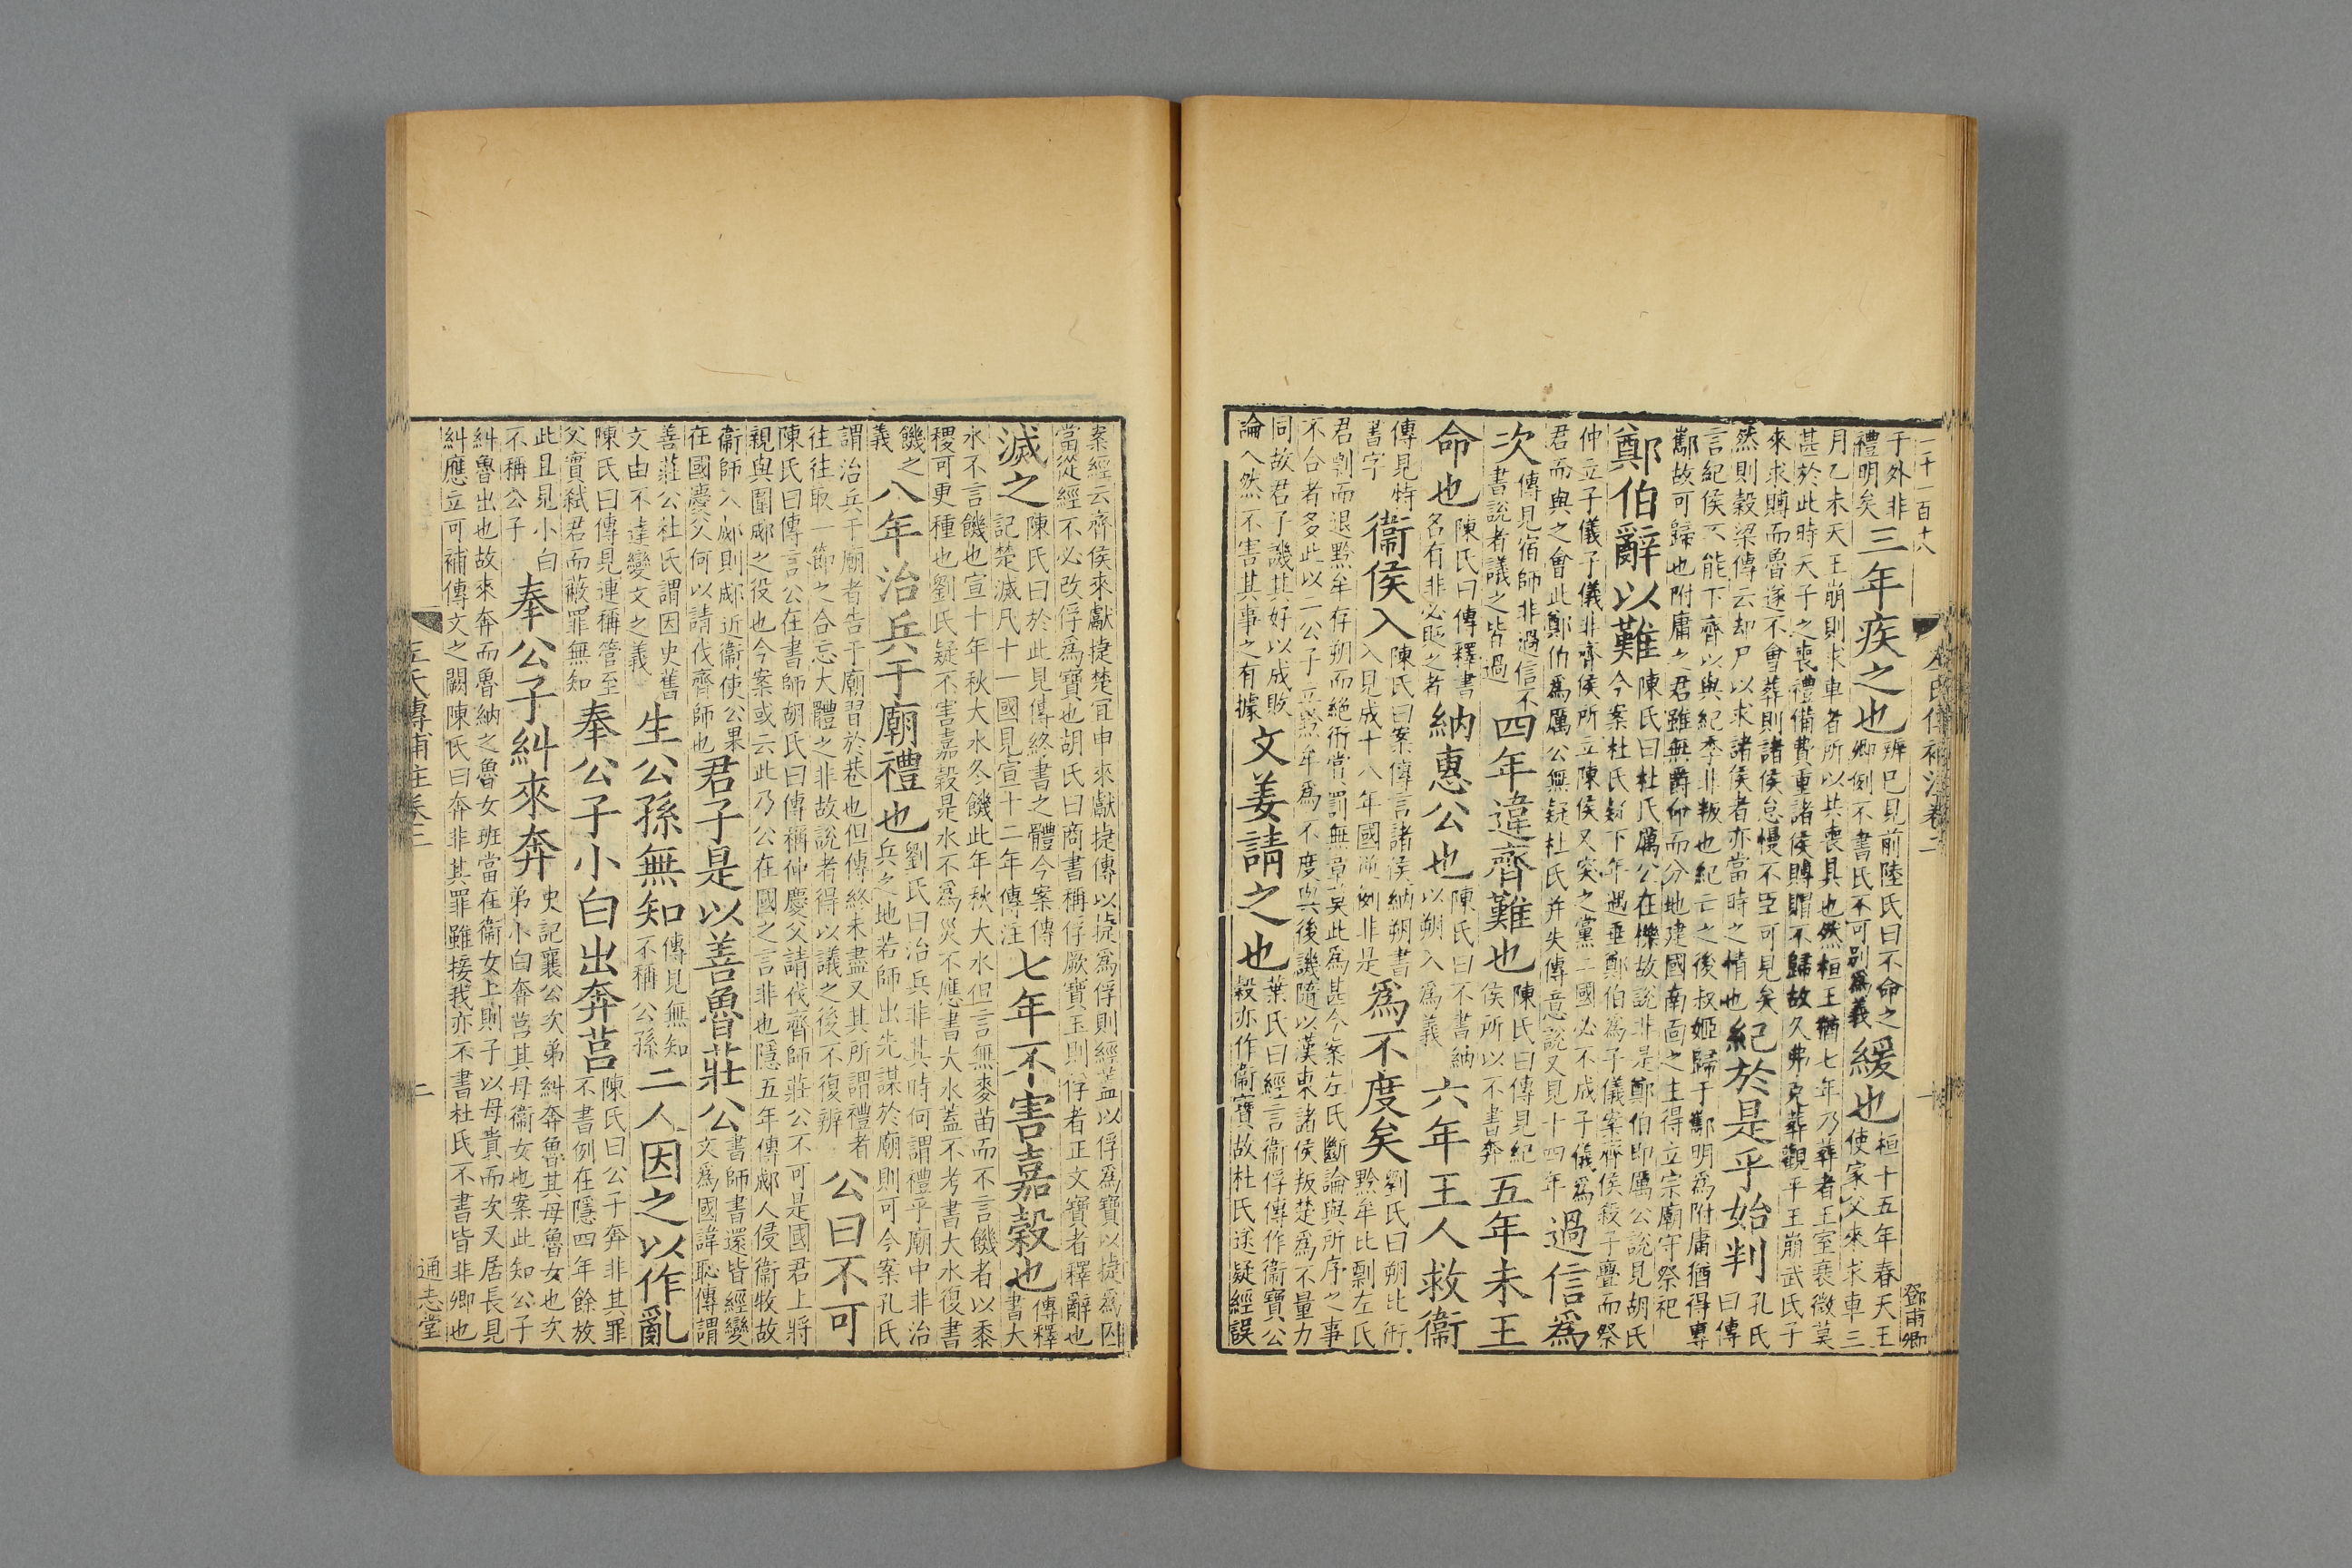 二千一百十八
左氏傳補注卷三
一
鄧甫卿
于外非
禮明矣
三年疾之也
辨已見前陸氏曰不命之
卿例不書氏不可別爲義
緩也
桓十五年春天王
使家父來求車三
月乙未天王崩則求車者所以共喪具也然桓王猶七年乃葬者王室衰微莫
甚於此時天子之喪禮備費重諸侯賻賵不歸故久弗克葬觀平王崩武氏子
來求賻而魯遂不會葬則諸侯怠慢不臣可見矣
然則穀梁傳云却尸以求諸侯者亦當時之情也
紀於是乎始判
孔氏
曰傳
言紀侯不能下齊以與紀季非叛也紀亡之後叔姬歸于酅明爲附庸猶得專
酅故可歸也附庸之君雖無爵命而分地建國南面之主得立宗廟守祭祀
鄭伯辭以難
陳氏曰杜氏厲公在櫟故說非是鄭伯即厲公說見胡氏
今案杜氏疑下年遇垂鄭伯爲子儀案齊侯殺子亹而祭
仲立子儀子儀非齊侯所立陳侯又突之黨二國必不成子儀爲
君而與之會此鄭伯爲厲公無疑杜氏并失傳意說又見十四年
過信爲
次
傳見宿師非過信不
書說者議之皆過
四年違齊難也
陳氏曰傳見紀
侯所以不書奔
五年未王
命也
陳氏曰傳釋書
名有非必貶之者
納惠公也
陳氏曰不書納
以朔入爲義
六年王人救衞
傳見特
書字
衞侯入
陳氏曰案傳言諸侯納朔書
入見成十八年國逆例非是
爲不度矣
劉氏曰朔比衎
黔牟比剽左氏
君剽而退黔牟存朔而絕衎賞罰無章莫此爲甚今案左氏斷論與所序之事
不合者多此以二公子立黔牟爲不度與後譏隨以漢東諸侯叛楚爲不量力
同故君子譏其好以成敗
論人然不害其事之有據
文姜請之也
葉氏曰經言衞俘傳作衞寶公
穀亦作衞寶故杜氏遂疑經誤
案經云齊侯來獻捷楚宜申來獻捷傳以捷爲俘則經蓋以俘爲寶以捷爲囚
當從經不必改俘爲寶也胡氏曰商書稱俘厥寶玉則俘者正文寶者釋辭也
滅之
陳氏曰於此見傳終書之體今案傳
記楚滅凡十一國見宣十二年傳注
七年不害嘉穀也
傳釋
書大
水不言饑也宣十年秋大水冬饑此年秋大水但言無麥苗而不言饑者以黍
稷可更種也劉氏疑不害嘉穀是水不爲災不應書大水蓋不考書大水復書
饑之
義
八年治兵于廟禮也
劉氏曰治兵非其時何謂禮乎廟中非治
兵之地若師出先謀於廟則可今案孔氏
謂治兵于廟者告于廟習於巷也但傳終未盡又其所謂禮者
往往取一節之合忘大體之非故說者得以議之後不復辨
公曰不可
陳氏曰傳言公在書師胡氏曰傳稱仲慶父請伐齊師莊公不可是國君上將
親與圍郕之役也今案或云此乃公在國之言非也隱五年傳郕人侵衞牧故
衞師入郕則郕近衞使公果
在國慶父何以請伐齊師也
君子是以善魯莊公
書師書還皆經變
文爲國諱恥傳謂
善莊公杜氏謂因史舊
文由不達變文之義
生公孫無知
傳見無知
不稱公孫
二人因之以作亂
陳氏曰傳見連稱管至
父實弒君而蔽罪無知
奉公子小白出奔莒
陳氏曰公子奔非其罪
不書例在隱四年餘放
此且見小白
不稱公子
奉公子糾來奔
史記襄公次弟糾奔魯其母魯女也次
弟小白奔莒其母衞女也案此知公子
糾魯出也故來奔而魯納之魯女班當在衞女上則子以母貴而次又居長見
糾應立可補傳文之闕陳氏曰奔非其罪雖接我亦不書杜氏不書皆非卿也
左氏傳補注卷三
二
通志堂